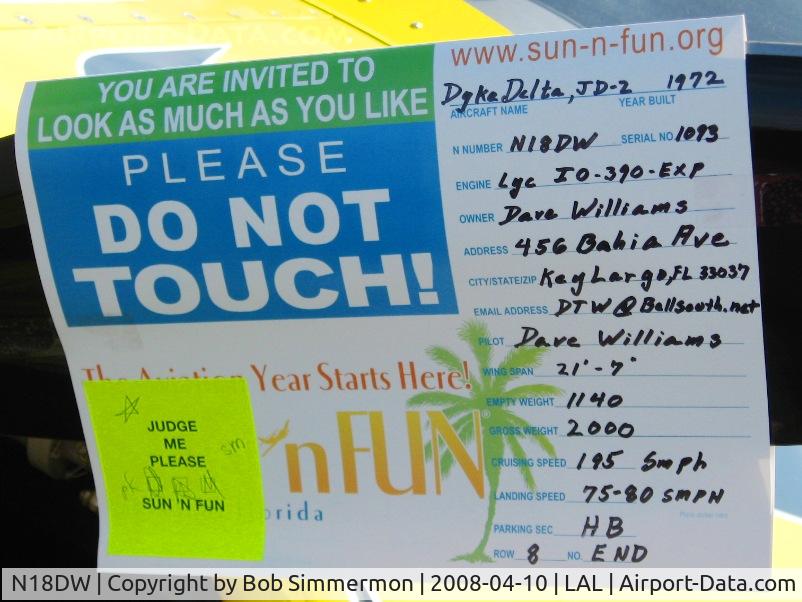 YOU ARE INVITED TO
LOOK AS MUCH AS YOU LIKE
PLEASE
DO NOT
TOUCH!
The Aviation Year Starts Here!
'nFUN®
orida
JUDGE
ME
PLEASE
SUN 'N FUN
sm
www.sun-n-fun.org
Dyke Delta, JD-2 1972
AIRCRAFT NAME YEAR BUILT
N NUMBER N18DW SERIAL NO 1093
ENGINE Lyc IO-390-EXP
OWNER Dave Williams
ADDRESS 456 Bahia Ave
CITY/STATE/ZIP Key Largo, FL 33037
EMAIL ADDRESS DTW@Bellsouth.net
PILOT Dave Williams
WING SPAN 21'-7"
EMPTY WEIGHT 1140
GROSS WEIGHT 2000
CRUISING SPEED 195 Smph
LANDING SPEED 75-80 SMPH
PARKING SEC HB
ROW 8 NO. END
N18DW | Copyright by Bob Simmermon | 2008-04-10 | LAL | Airport-Data.com